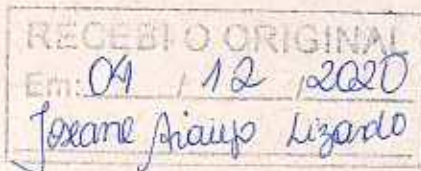 RECEBI O ORIGINAL
Em: 04 / 12 / 2020
Joseane Araujo Lizardo